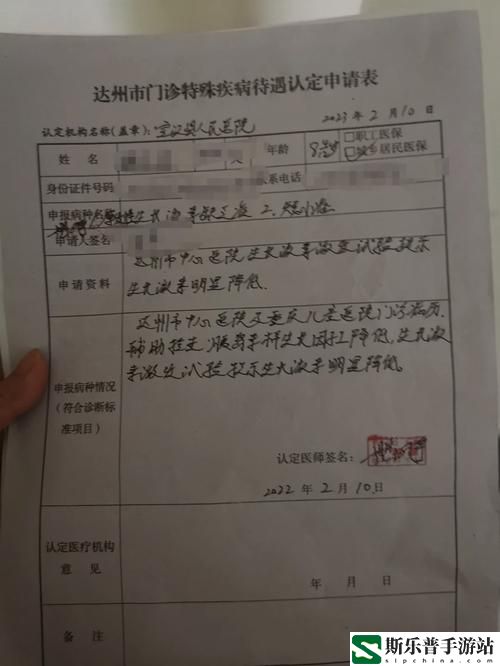 达州市门诊特殊疾病待遇认定申请表
认定机构名称(盖章): 宣汉县人民医院 2023年2月10日
姓名 年龄 8岁 □职工医保
□城乡居民医保
身份证件号码 联系电话
申报病种名称 生长激素缺乏症 2.
申请人签名
申请资料
达州市中心医院生长激素激发试验提示
生长激素明显降低.
申报病种情况
(符合诊断标
准项目)
达州市中心医院及重庆儿童医院门诊病历.
辅助检查:胰岛素样生长因子降低,生长激
素激发试验提示生长激素明显降低.
认定医师签名:
2022年2月10日
认定医疗机构
意见
年 月 日
备注
斯乐普手游站
slpchina.com